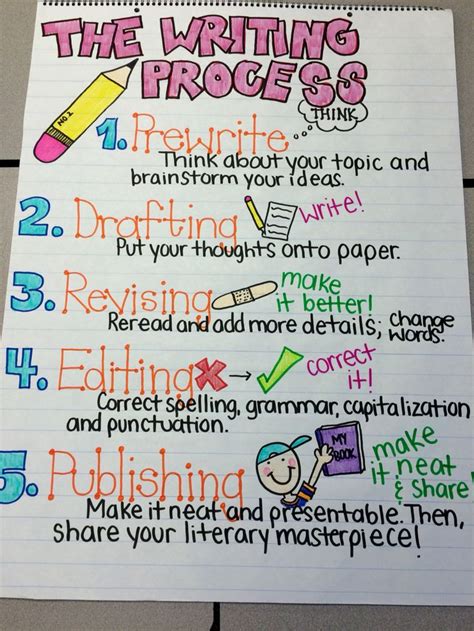 THE WRITING
PROCESS
THINK
1. Prewrite
Think about your topic and
brainstorm your ideas.
2. Drafting write!
Put your thoughts onto paper.
3. Revising make
it better!
Reread and add more details; change
words.
4. Editing correct
it!
Correct spelling, grammar, capitalization
and punctuation.
5. Publishing MY
BOOK
make
it neat
& share!
Make it neat and presentable. Then,
share your literary masterpiece!